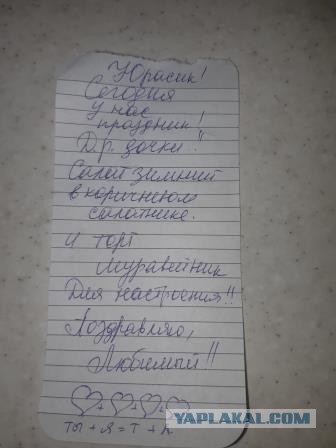 Юрасик!
Сегодня
у нас
праздник!
Д.р. дочки!!
Салат зимний
в коричневом
салатнике.
и торт
Муравейник
Для настроения!!
Поздравляю,
Любимый!!
ты + я = Т + Л
YAPLAKAL.COM